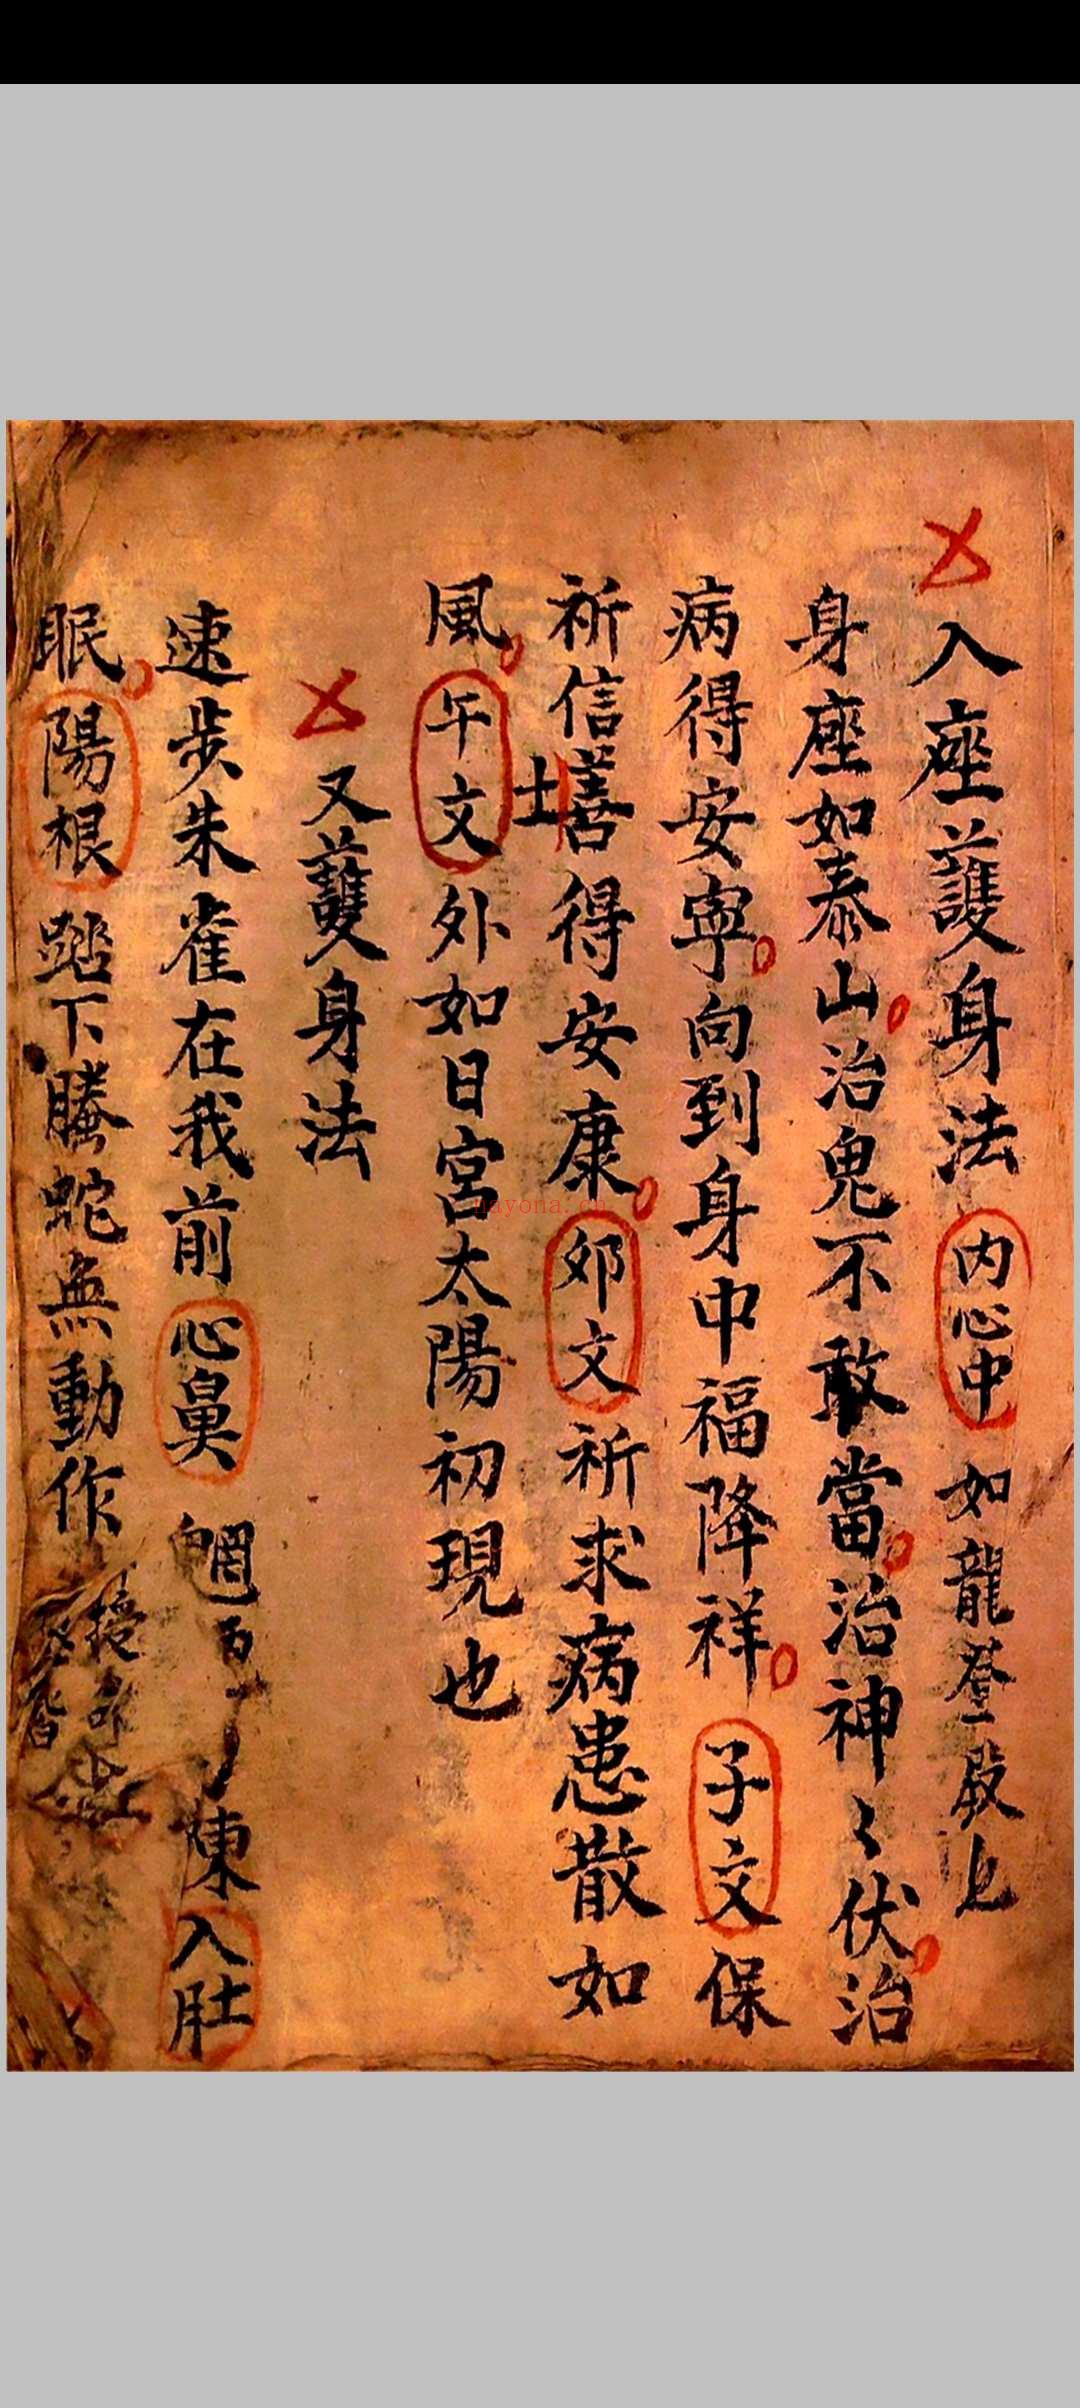 入座護身法内心中如龍登殿上
身座如泰山治鬼不敢當治神々伏治
病得安寧向到身中福降祥子文保
祈信善士得安康夘文祈求病患散如
風午文外如日宮太陽初現也
又護身法
速步朱雀在我前心鼻陳入肚
眠陽根踏下騰蛇無動作
nayona.cn